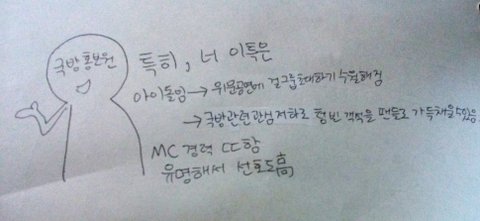 국방홍보원
특히, 너 이특은
아이돌임 → 위문공연에 걸그룹초대하기 수월해짐
→ 국방관련관심저하로 텅빈 객석을 팬들로 가득채울수있음
MC 경력 ㄷㄷ함
유명해서 선호도高